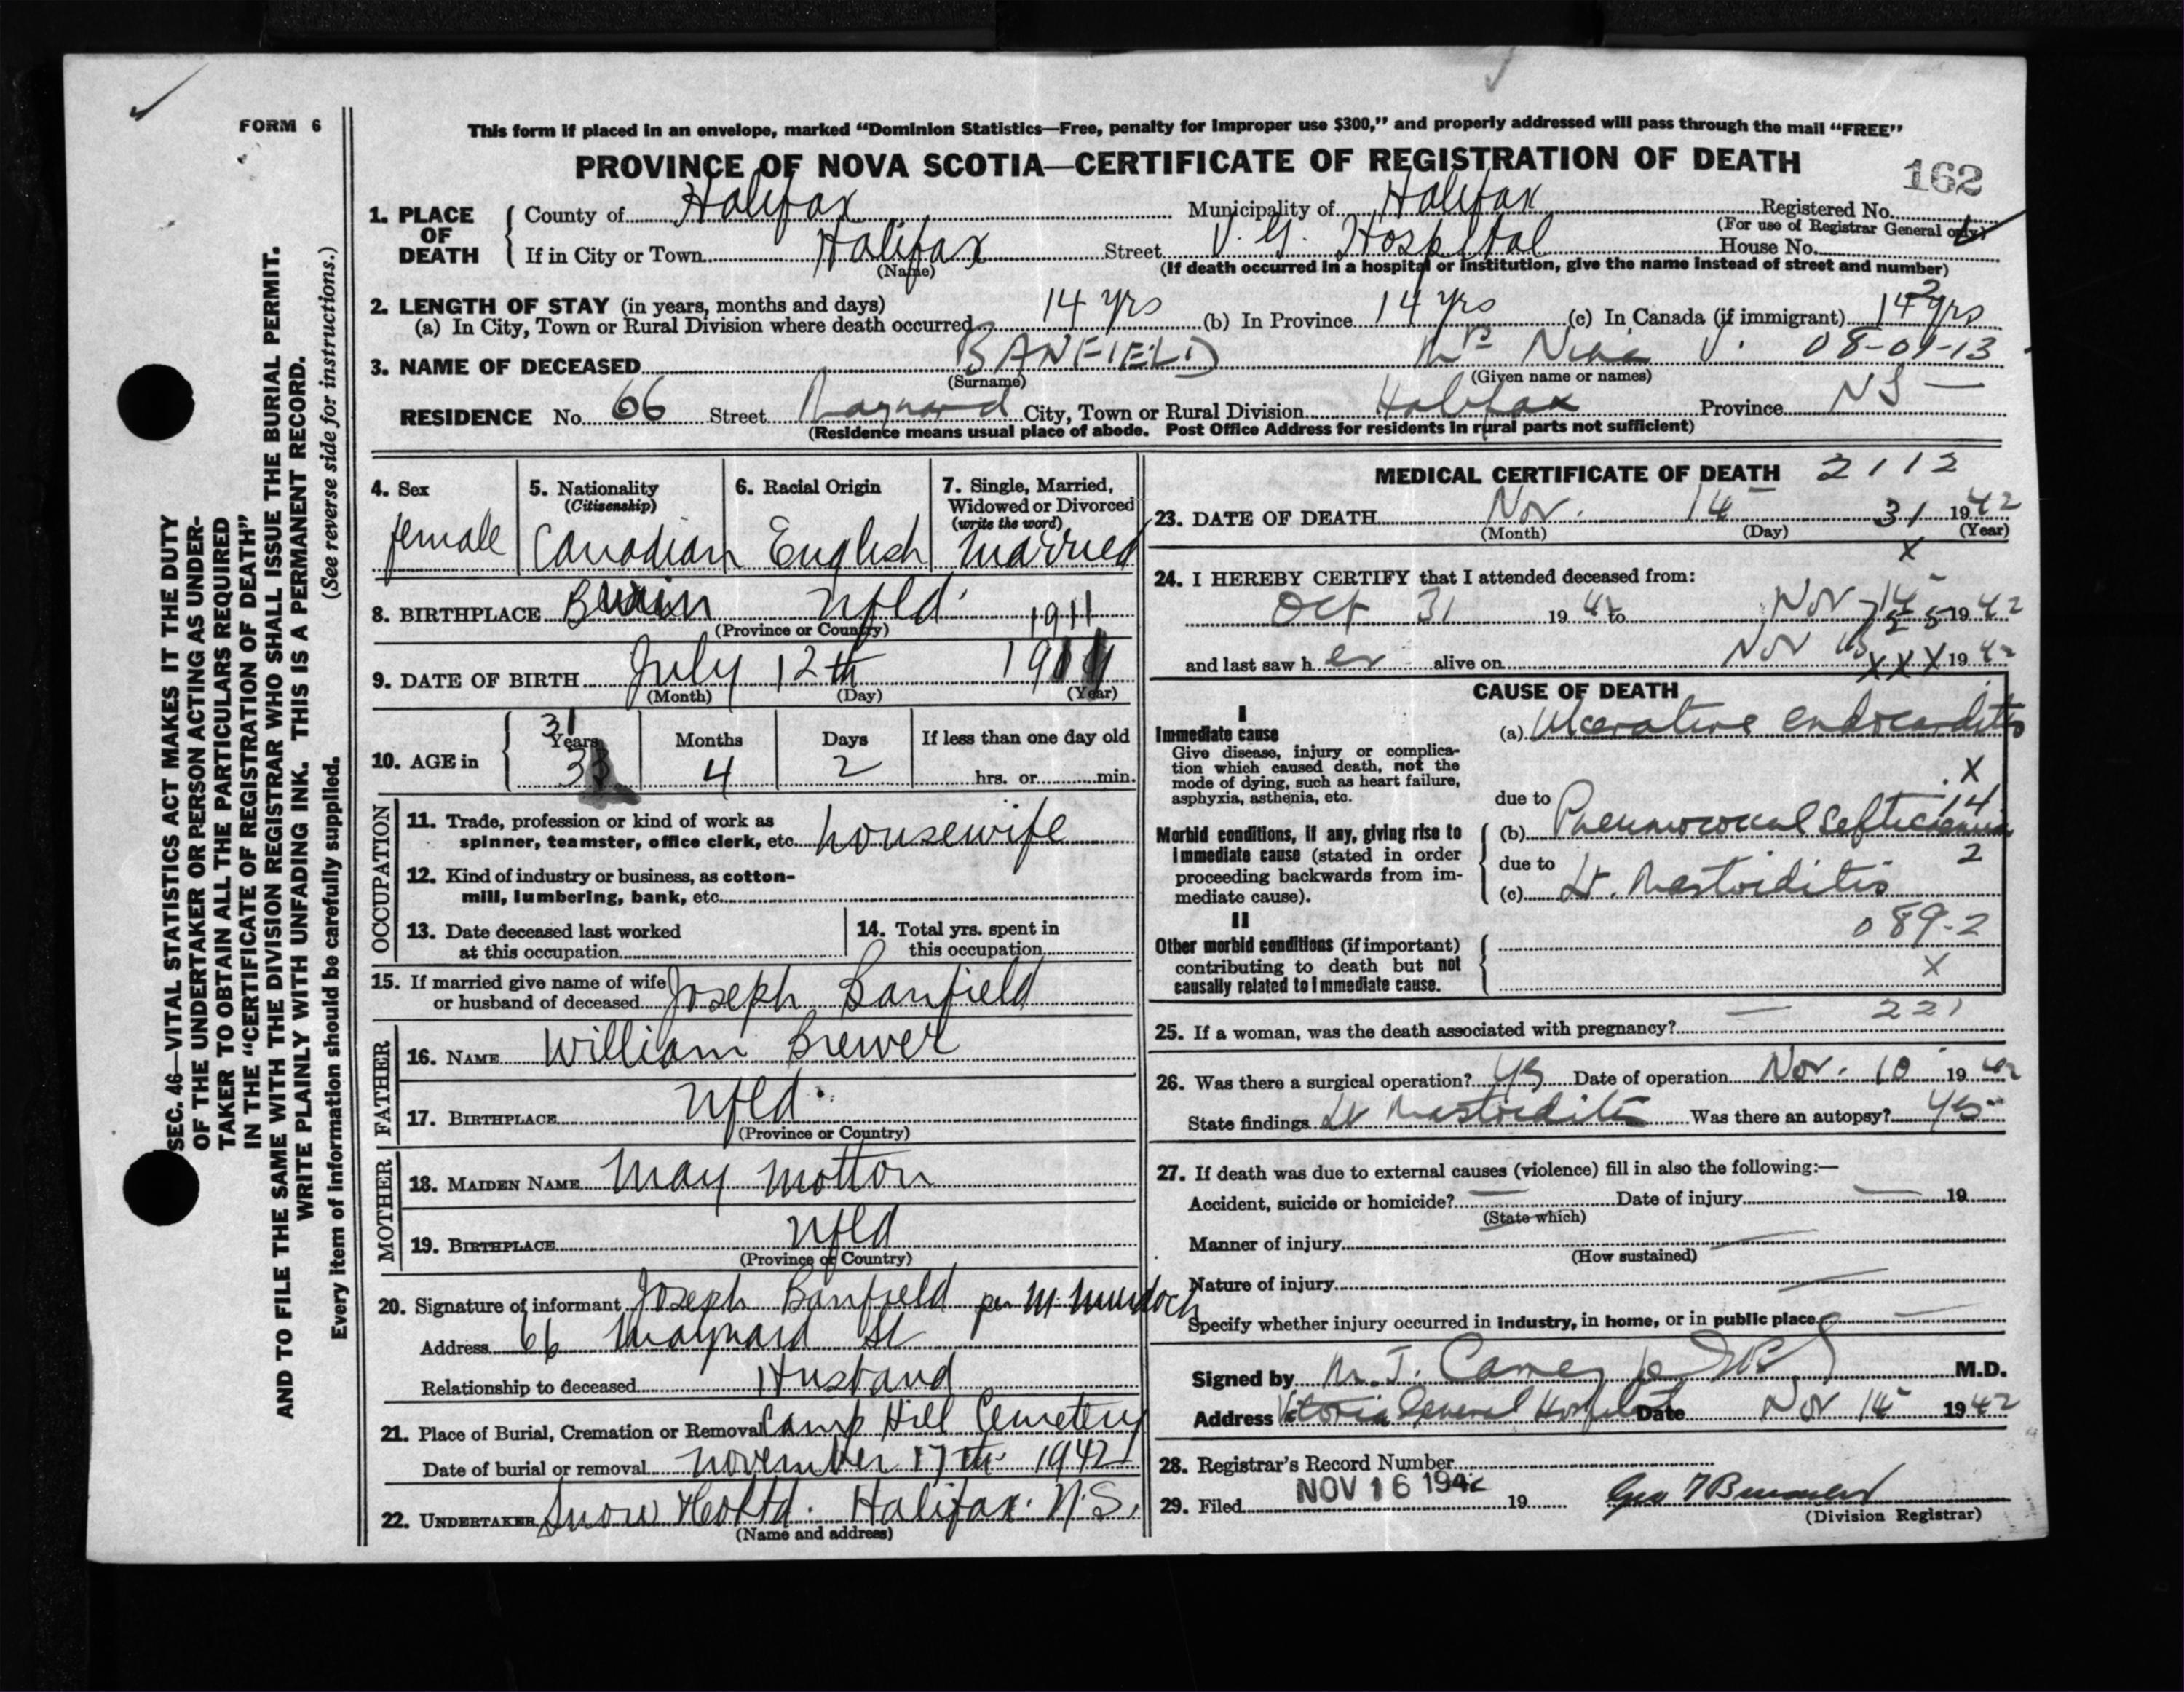 FORM 6
This form if placed in an envelope, marked "Dominion Statistics—Free, penalty for improper use $300," and properly addressed will pass through the mail "FREE"
PROVINCE OF NOVA SCOTIA—CERTIFICATE OF REGISTRATION OF DEATH
162
1. PLACE OF DEATH
County of Halifax Municipality of Halifax Registered No.
(For use of Registrar General only)
If in City or Town Halifax Street V. G. Hospital House No.
(Name) (If death occurred in a hospital or institution, give the name instead of street and number)
2. LENGTH OF STAY (in years, months and days)
(a) In City, Town or Rural Division where death occurred 14 yrs (b) In Province 14 yrs (c) In Canada (if immigrant) 14 yrs
2
3. NAME OF DECEASED BANFIELD Mrs V. 08-01-13
(Surname) (Given name or names)
RESIDENCE No. 66 Street Maynard City, Town or Rural Division Halifax Province NS —
(Residence means usual place of abode. Post Office Address for residents in rural parts not sufficient)
4. Sex
female
5. Nationality
(Citizenship)
Canadian
6. Racial Origin
English
7. Single, Married,
Widowed or Divorced
(write the word)
Married
8. BIRTHPLACE Nfld. 1911
(Province or Country)
9. DATE OF BIRTH July 12th 1911
(Month) (Day) (Year)
10. AGE in
31
Years
Months
4
Days
2
If less than one day old
hrs. or min.
OCCUPATION
11. Trade, profession or kind of work as
spinner, teamster, office clerk, etc. housewife
12. Kind of industry or business, as cotton-
mill, lumbering, bank, etc.
13. Date deceased last worked
at this occupation
14. Total yrs. spent in
this occupation
15. If married give name of wife
or husband of deceased Joseph Banfield
FATHER
16. NAME William Brewer
17. BIRTHPLACE Nfld.
(Province or Country)
MOTHER
18. MAIDEN NAME May Motton
19. BIRTHPLACE Nfld
(Province or Country)
20. Signature of informant Joseph Banfield per M Murdoch
Address 66 Maynard St
Relationship to deceased Husband
21. Place of Burial, Cremation or Removal Camp Hill Cemetery
Date of burial or removal November 17th 1942
22. UNDERTAKER Snow & Co Ltd. Halifax. N.S.
(Name and address)
MEDICAL CERTIFICATE OF DEATH 2112
23. DATE OF DEATH Nov. 14 31 1942
(Month) (Day) (Year)
x
24. I HEREBY CERTIFY that I attended deceased from:
Oct 31 1942 to Nov 14 1942
and last saw her alive on Nov 1942
XXX
CAUSE OF DEATH
I
Immediate cause
Give disease, injury or complica-
tion which caused death, not the
mode of dying, such as heart failure,
asphyxia, asthenia, etc.
(a) Ulcerative endocarditis
x
due to
14
Morbid conditions, if any, giving rise to
immediate cause (stated in order
proceeding backwards from im-
mediate cause).
(b) Pneumococcal Septicaemia
due to 2
(c) Lt. Mastoiditis
II
089-2
Other morbid conditions (if important)
contributing to death but not
causally related to immediate cause.
x
25. If a woman, was the death associated with pregnancy? — 221
26. Was there a surgical operation? yes Date of operation Nov. 10 1942
State findings Lt Mastoiditis Was there an autopsy? yes
27. If death was due to external causes (violence) fill in also the following:—
Accident, suicide or homicide? — Date of injury — 19
(State which)
Manner of injury —
(How sustained)
Nature of injury —
Specify whether injury occurred in industry, in home, or in public place —
Signed by M.D.
Address Victoria General Hospital Date Nov 14 1942
28. Registrar's Record Number
29. Filed NOV 16 1942 19
(Division Registrar)
SEC. 46—VITAL STATISTICS ACT MAKES IT THE DUTY
OF THE UNDERTAKER OR PERSON ACTING AS UNDER-
TAKER TO OBTAIN ALL THE PARTICULARS REQUIRED
IN THE "CERTIFICATE OF REGISTRATION OF DEATH"
AND TO FILE THE SAME WITH THE DIVISION REGISTRAR WHO SHALL ISSUE THE BURIAL PERMIT.
WRITE PLAINLY WITH UNFADING INK. THIS IS A PERMANENT RECORD.
Every item of information should be carefully supplied. (See reverse side for instructions.)